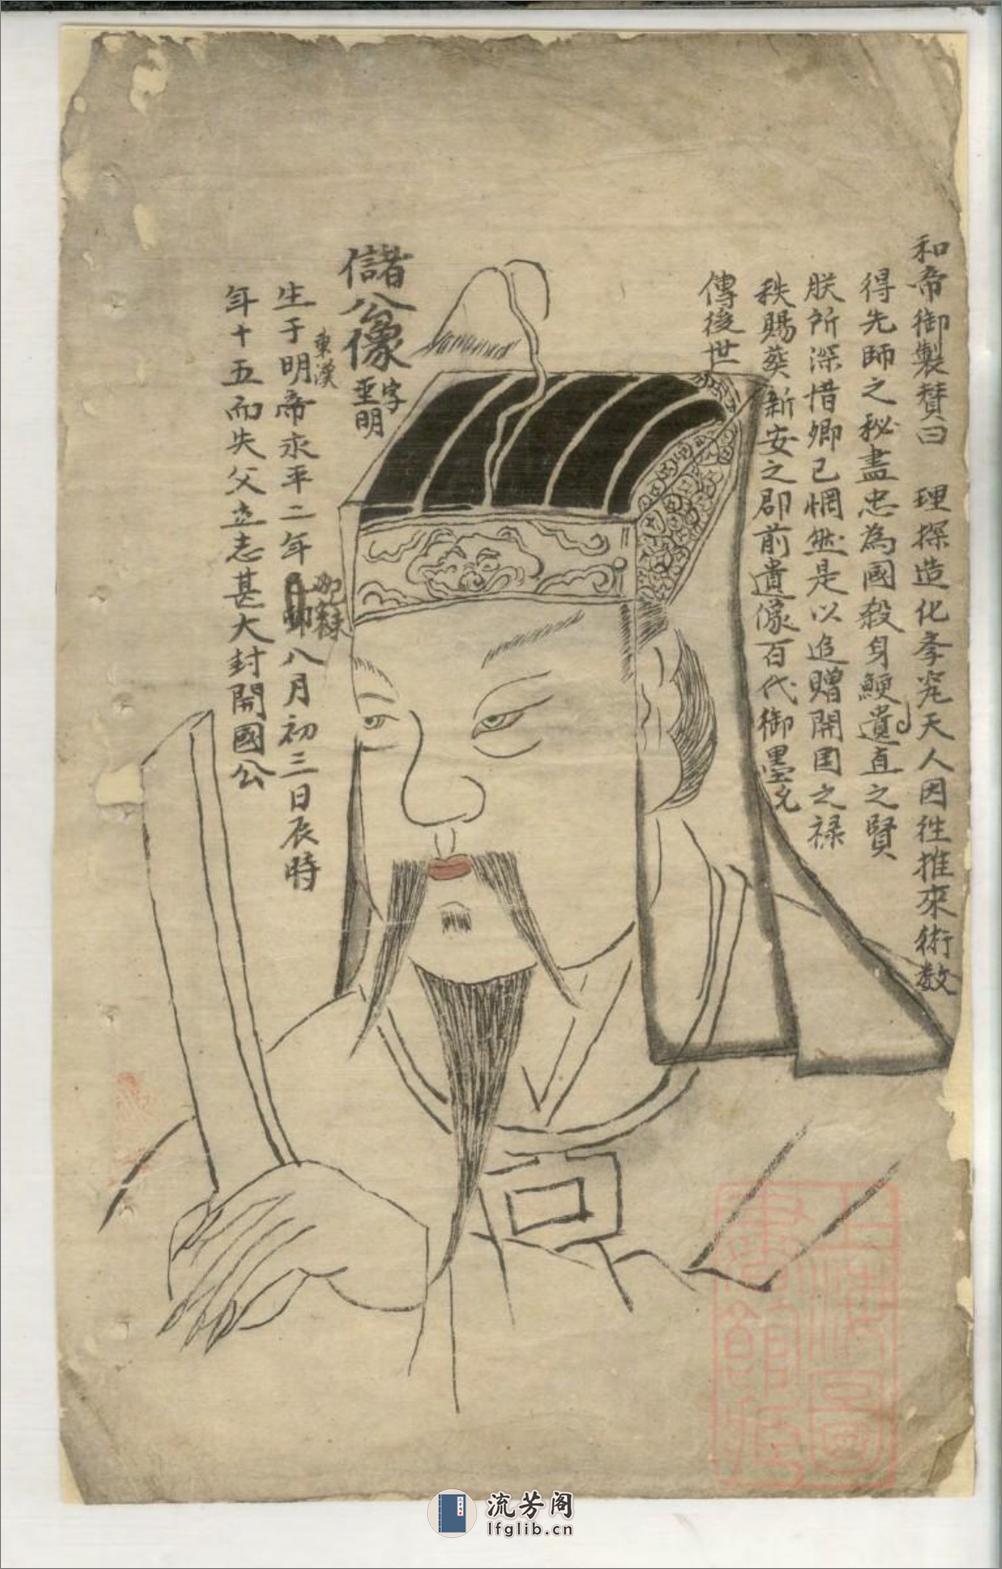 和帝御製贊曰 理探造化孝究天人因往推來術数
得先師之秘盡忠為國殺身鯁遺直之賢
朕所深惜卿已惘然是以追贈開国之禄
秩賜葬新安之郡前遺像百代御墨
傳後世
儲公像
字
明
生于明帝永平二年
東漢
八月初三日辰時
年十五而失父立志甚大封開國公
上海圖
書館藏
流芳阁
lfglib.cn